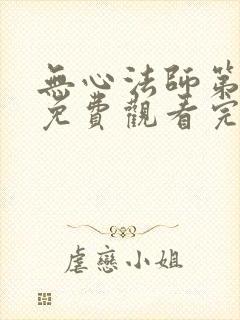 無心法師第
免費觀看完
虐戀小姐